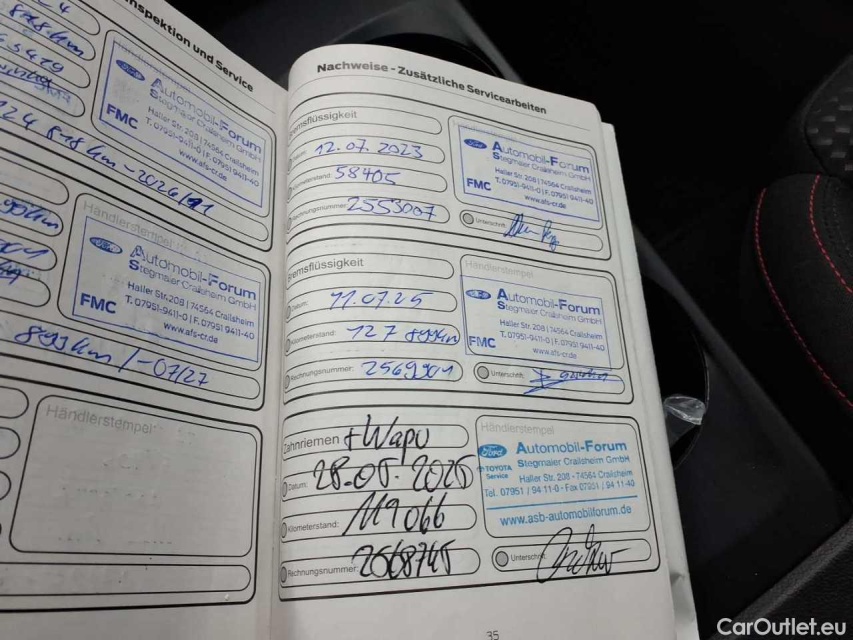 Inspektion und Service
Automobil-Forum
Stegmaier Crailsheim GmbH
Haller Str. 208 | 74564 Crailsheim
T. 07951-9411-0 | F. 07951 9411-40
www.afs-cr.de
FMC
Händlerstempel
Automobil-Forum
Stegmaier Crailsheim GmbH
Haller Str. 208 | 74564 Crailsheim
T. 07951-9411-0 | F. 07951 9411-40
www.afs-cr.de
FMC
893km /-07/27
Händlerstempel:
Nachweise - Zusätzliche Servicearbeiten
Bremsflüssigkeit
Datum: 12.07.2023
Kilometerstand: 58405
Rechnungsnummer: 2553007
Ford
Automobil-Forum
Stegmaier Crailsheim GmbH
Haller Str. 208 | 74564 Crailsheim
T. 07951-9411-0 | F. 07951 9411-40
www.afs-cr.de
FMC
Unterschrift:
Bremsflüssigkeit
Datum: 11.07.25
Kilometerstand: 127 899km
Rechnungsnummer: 2569901
Händlerstempel:
Automobil-Forum
Stegmaier Crailsheim GmbH
Haller Str. 208 | 74564 Crailsheim
T. 07951-9411-0 | F. 07951 9411-40
www.afs-cr.de
FMC
Unterschrift:
Zahnriemen + Wapu
Datum: 28.05.2025
Kilometerstand: 119066
Rechnungsnummer: 2568745
Händlerstempel:
Ford
TOYOTA
Service
Automobil-Forum
Stegmaier Crailsheim GmbH
Haller Str. 208 - 74564 Crailsheim
Tel. 07951 / 94 11-0 - Fax 07951 / 94 11-40
www.asb-automobilforum.de
Unterschrift:
35
CarOutlet.eu